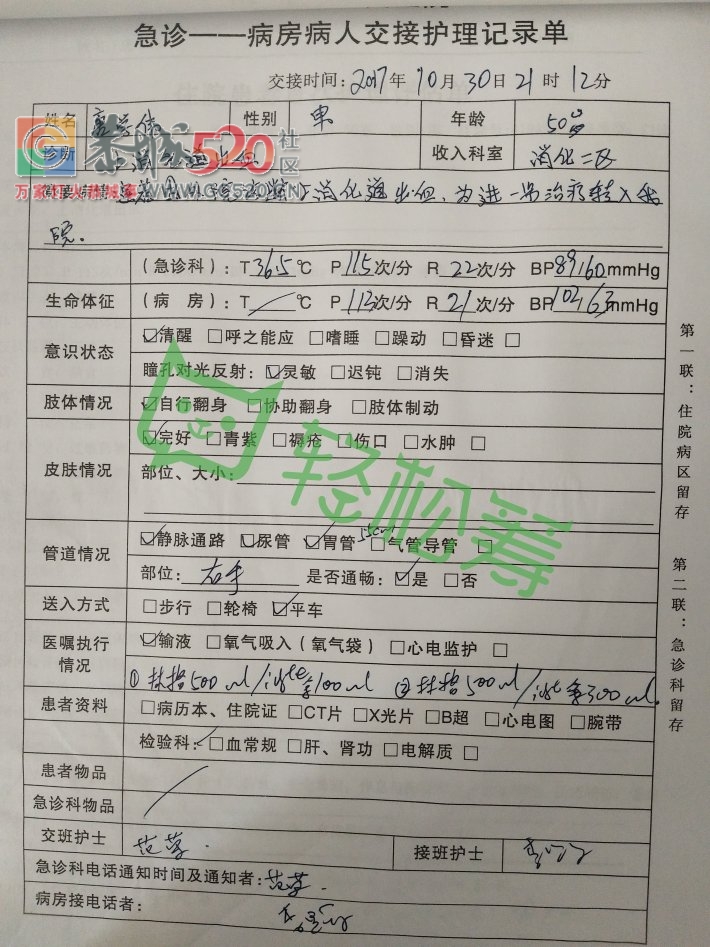 急诊——病房病人交接护理记录单
交接时间：2017年10月30日21时12分
姓名 性别 男 年龄 50岁
诊断 上消化道出血 收入科室 消化二区
上消化道出血，为进一步治疗转入我
院。
（急诊科）：T 36.5℃ P 115次/分 R 22次/分 BP 89/60mmHg
生命体征 （病 房）：T ℃ P 112次/分 R 21次/分 BP 102/63mmHg
意识状态 ☑清醒 □呼之能应 □嗜睡 □躁动 □昏迷 □
瞳孔对光反射：☑灵敏 □迟钝 □消失
肢体情况 ☑自行翻身 □协助翻身 □肢体制动
皮肤情况 ☑完好 □青紫 □褥疮 □伤口 □水肿 □
部位、大小：
管道情况 ☑静脉通路 ☑尿管 ☑胃管 55cm □气管导管 □
部位：右手 是否通畅：☑是 □否
送入方式 □步行 □轮椅 ☑平车
医嘱执行情况 ☑输液 □氧气吸入（氧气袋） □心电监护 □
① 500ml/ 100ml ② 500ml/ 300ml
患者资料 □病历本、住院证 □CT片 □X光片 □B超 □心电图 □腕带
检验科：□血常规 □肝、肾功 □电解质 □
患者物品
急诊科物品
交班护士 接班护士
急诊科电话通知时间及通知者：
病房接电话者：
第一联：住院病区留存
第二联：急诊科留存
恭城520社区
万家灯火恭城事 WWW.GC520.CN
轻松筹